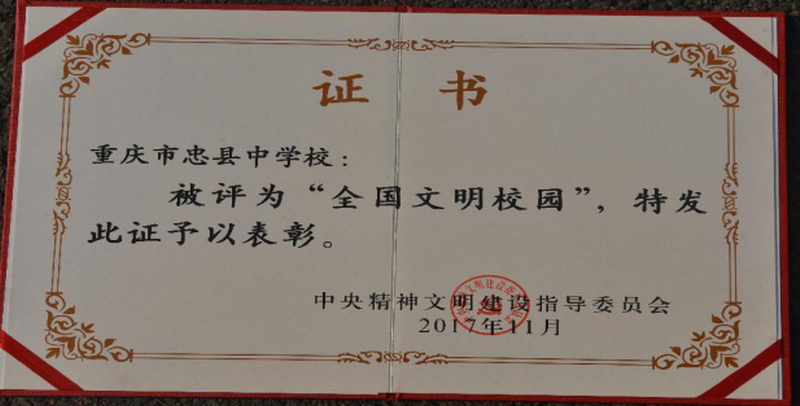 证书
重庆市忠县中学校：
被评为“全国文明校园”，特发
此证予以表彰。
中央精神文明建设指导委员会
2017年11月